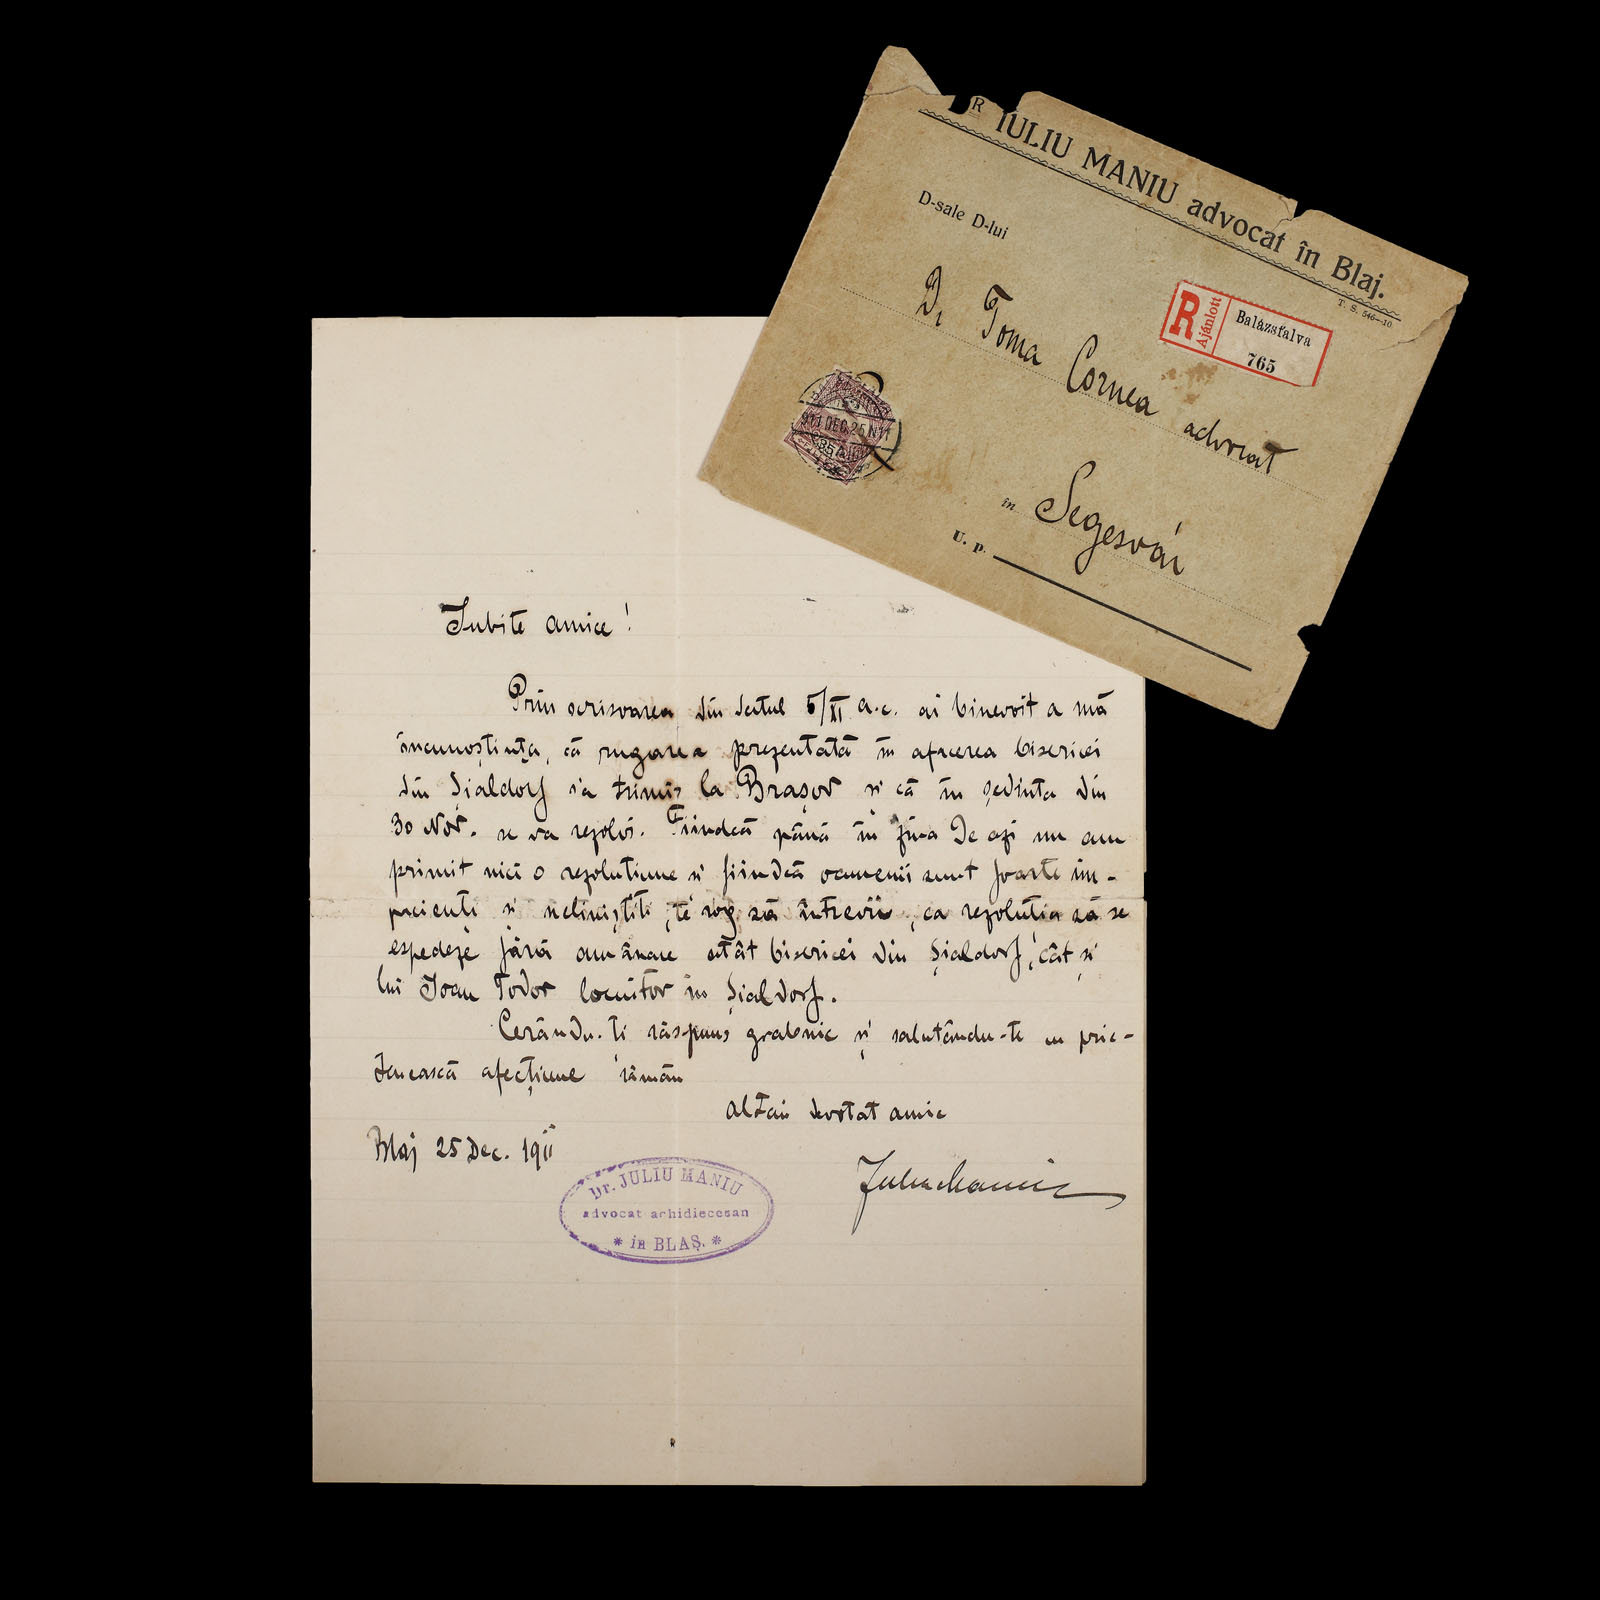 Dr IULIU MANIU advocat în Blaj.
T. S. 546—10
D-sale D-lui
R Ajánlott Balázsfalva
765
Dr Toma Cornea advocat
911 DEC. 25 N11
în Segesvár
U. p.
Iubite amice!
Prin scrisoarea din datul 5/XI a.c. ai binevoit a mă
încunoștința, că rugarea prezentată în afacerea bisericei
din Șialdorf s'a trimis la Brașov și că în ședința din
30 Nov. se va rezolvi. Fiindcă până în ziua de azi nu am
primit nici o rezoluțiune și fiindcă oamenii sunt foarte im-
pacienți și neliniștiți, te rog să întrevii, ca rezoluția să se
espedeze fără amânare atât bisericei din Șialdorf, cât și
lui Ioan Todor locuitor în Șialdorf.
Cerându-ți răspuns grabnic și salutându-te cu prie-
tenească afecțiune rămân
al tău devotat amic
Blaj 25 Dec. 1911
Iuliu Maniu
Dr. JULIU MANIU
advocat arhidiecesan
* în BLAȘ. *